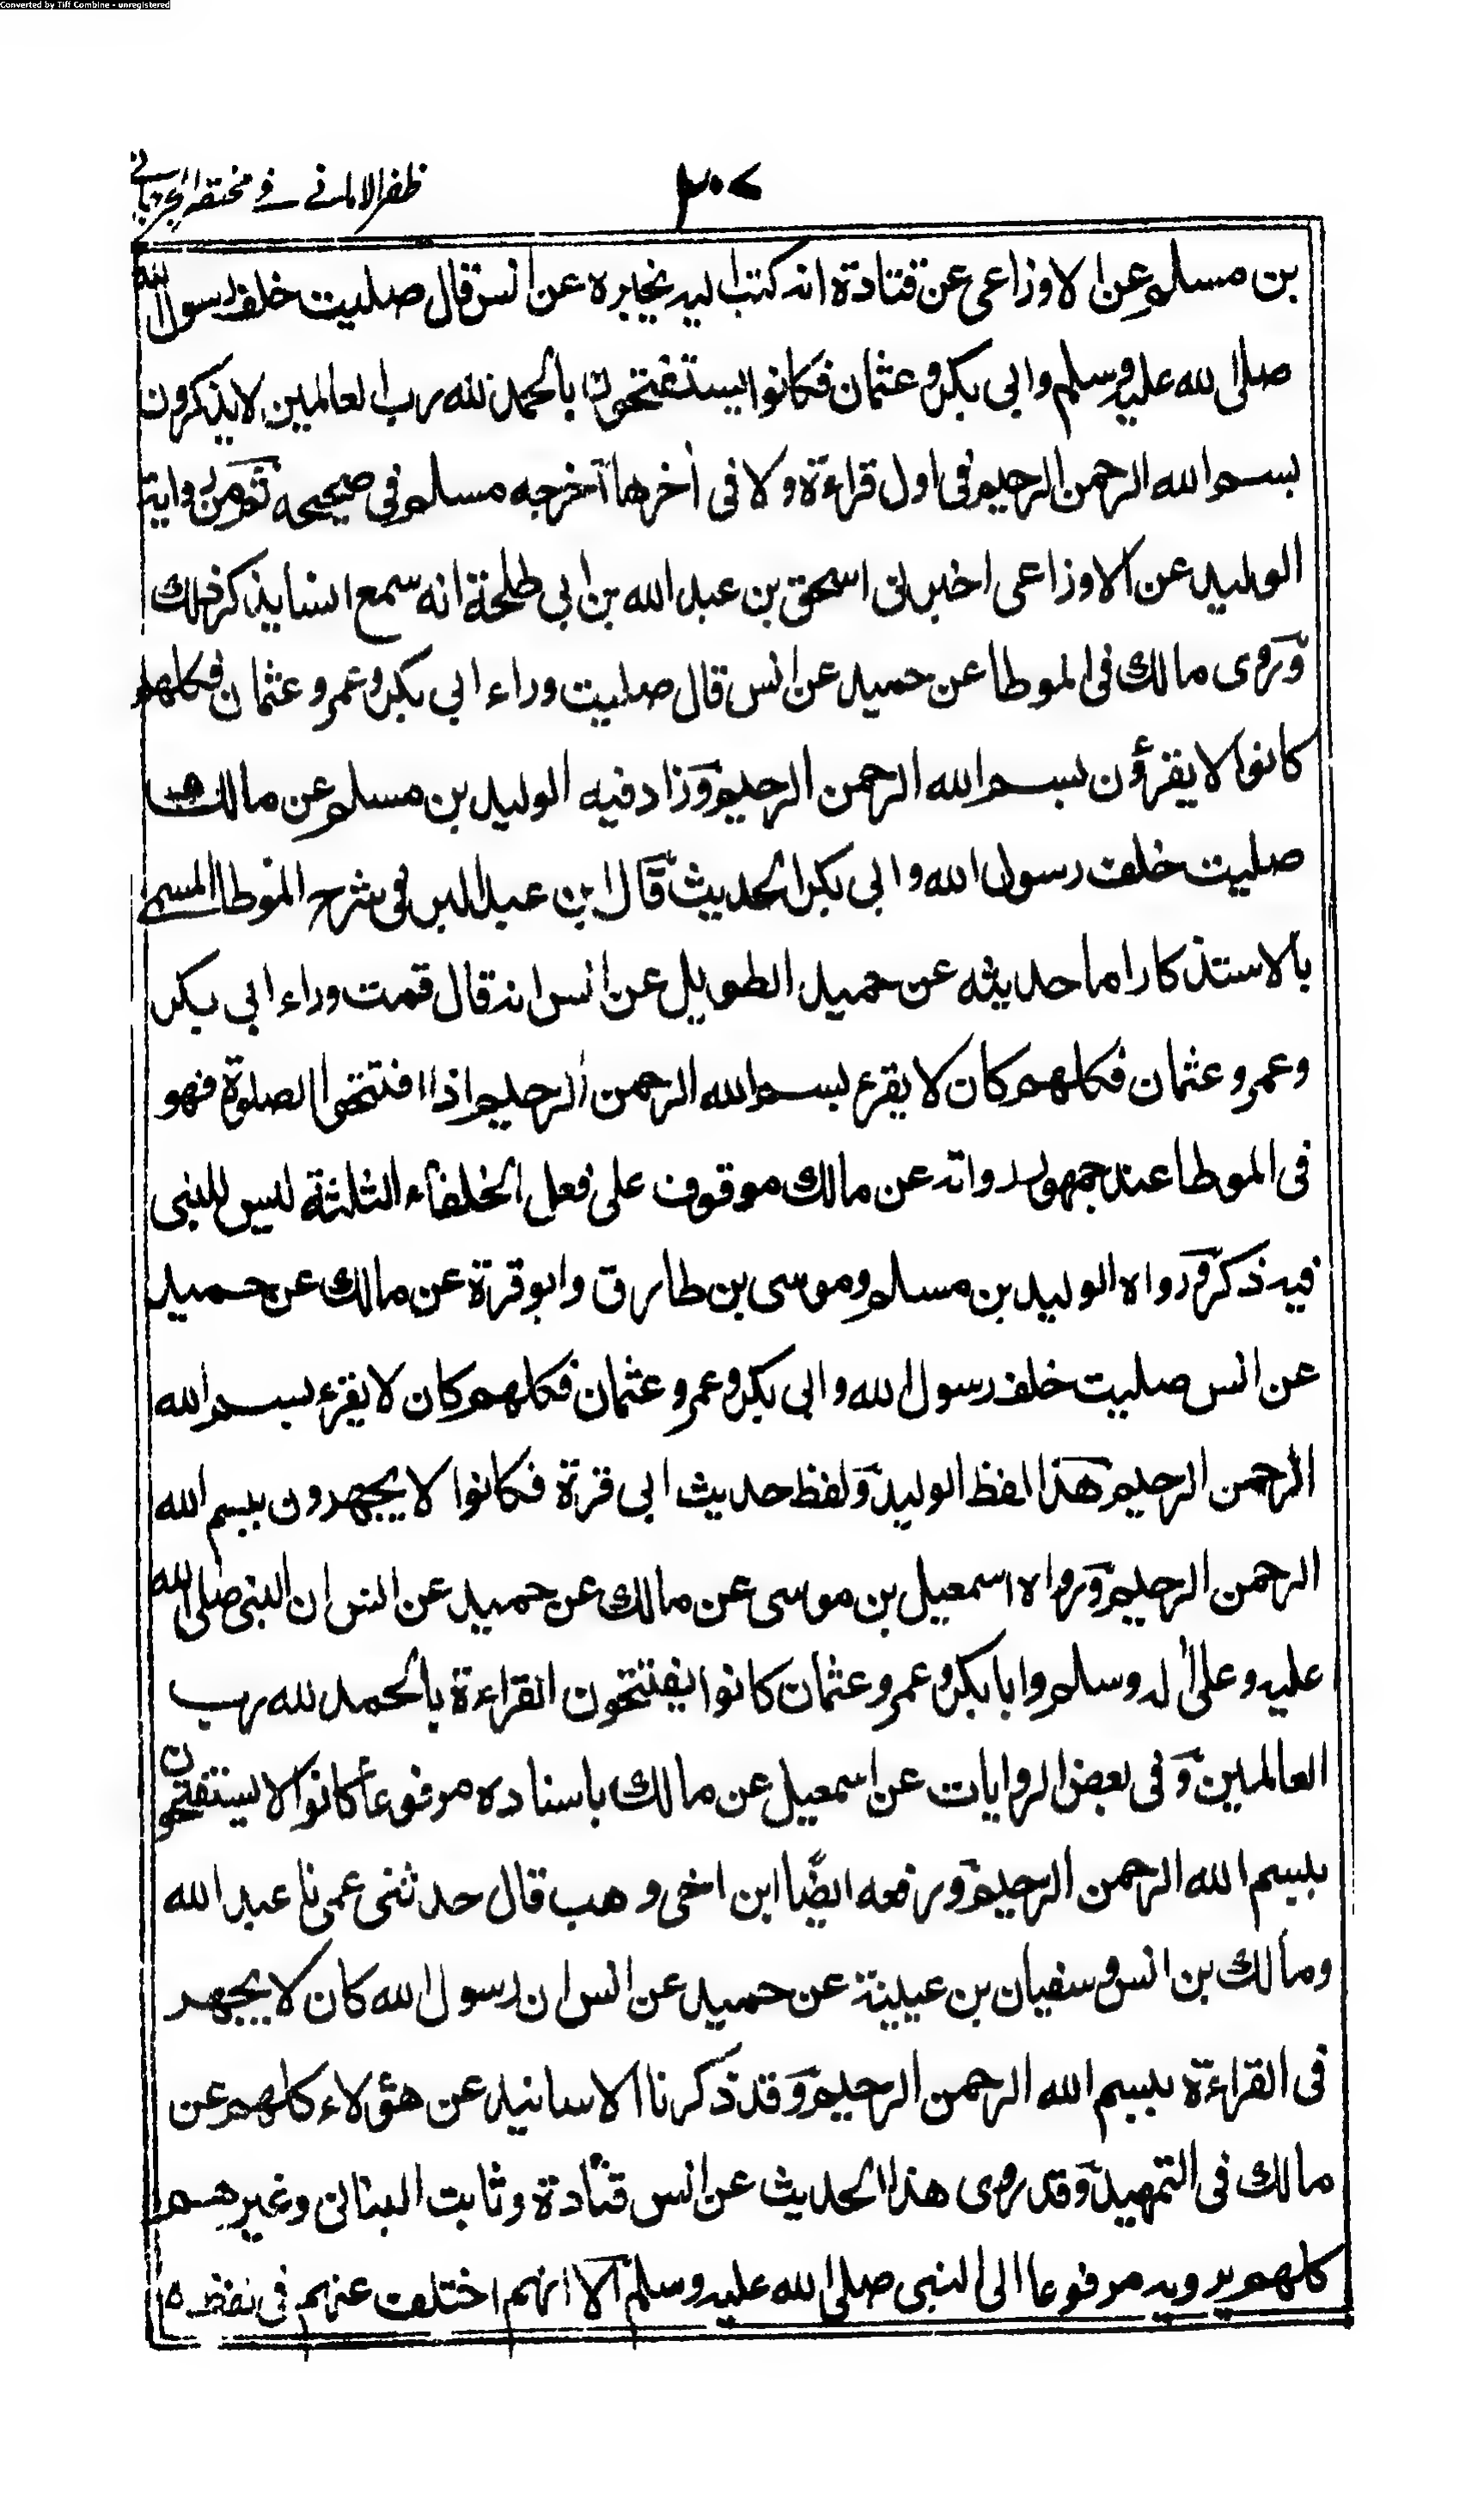 Converted by Tiff Combine - unregistered
٢٠٧
ظفر الامانے فے مختصر الجرجانے
بن مسلم عن الاوزاعی عن قتادة انه کتب الیه یخبره عن انس قال صلیت خلف رسول الله
صلی الله علیه وسلم وابی بکر و عثمان فکانوا یستفتحون بالحمد لله رب العالمین لا یذکرون
بسم الله الرحمن الرحیم فی اول قراءة ولا فی اخرها اخرجه مسلم فی صحیحه ثم من روایة
الولید عن الاوزاعی اخبرنی اسحق بن عبد الله بن ابی طلحة انه سمع انسا یذکر ذلک
وروی مالک فی الموطا عن حمید عن انس قال صلیت وراء ابی بکر وعمر وعثمان فکلهم
کانوا لا یقرؤن بسم الله الرحمن الرحیم وزاد فیه الولید بن مسلم عن مالک
صلیت خلف رسول الله وابی بکر الحدیث قال ابن عبد البر فی شرح الموطا المسمی
بالاستذکار اما حدیثه عن حمید الطویل عن انس انه قال قمت وراء ابی بکر
وعمر وعثمان فکلهم کان لا یقرء بسم الله الرحمن الرحیم اذا افتتحوا الصلوة فهو
فی الموطا عند جمهور رواته عن مالک موقوف علی فعل الخلفاء الثلثة لیس للنبی
فیه ذکر ورواه الولید بن مسلم وموسی بن طارق وابو قرة عن مالک عن حمید
عن انس صلیت خلف رسول الله وابی بکر وعمر وعثمان فکلهم کان لا یقرء بسم الله
الرحمن الرحیم هذا لفظ الولید ولفظ حدیث ابی قرة فکانوا لا یجهرون ببسم الله
الرحمن الرحیم ورواه اسمعیل بن موسی عن مالک عن حمید عن انس ان النبی صلی الله
علیه وعلی اله وسلم وابا بکر وعمر وعثمان کانوا یفتتحون القراءة بالحمد لله رب
العالمین وفی بعض الروایات عن اسمعیل عن مالک باسناده مرفوعا کانوا لا یستفتحون
ببسم الله الرحمن الرحیم ورفعه ایضًا ابن اخی وهب قال حدثنی عمی نا عبد الله
ومالک بن انس وسفیان بن عیینة عن حمید عن انس ان رسول الله کان لا یجهر
فی القراءة ببسم الله الرحمن الرحیم وقد ذکرنا الاسانید عن هؤلاء کلهم عن
مالک فی التمهید وقد روی هذا الحدیث عن انس قتادة وثابت البنانی وغیرهم
کلهم یرویه مرفوعا الی النبی صلی الله علیه وسلم الا انهم اختلف عنهم فی لفظه